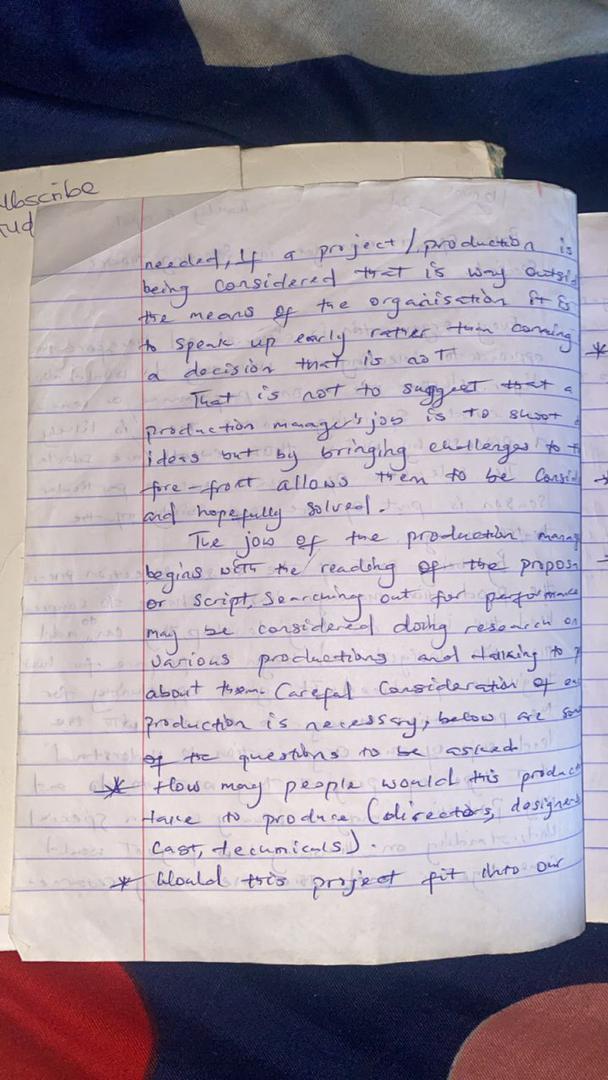 needed, If a project / production is
being considered that is way outsid
the means of the organisation it is
to speak up early rather than coming
a decision that is not
That is not to suggest that a
production manager's job is to shoot
ideas but by bringing challenges to t
fore-front allows them to be consid
and hopefully solved.
The job of the production manag
begins with the reading of the propos
or script, searching out for performance
may be considered doing research on
various productions and talking to p
about them. Careful consideration of
production is necessary, below are som
of the questions to be asked
* How may people would this product
take to produce (directors, designers
cast, technicals).
* Would this project fit into our
ubscribe